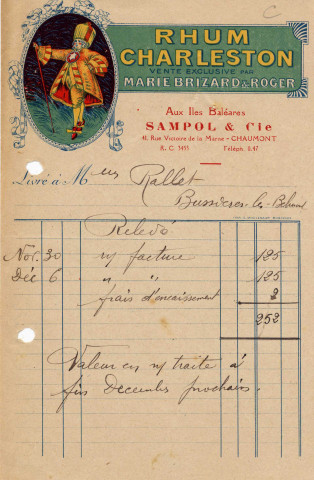 RHUM
CHARLESTON
VENTE EXCLUSIVE PAR
MARIE BRIZARD & ROGER
Aux Iles Baléares
SAMPOL & Cie
41, Rue Victoire de la Marne - CHAUMONT
R. C. 1451 Téléph. 2.47
Livré à Mrs Rallet
Bussières-les-Belmont
Relevé
Nov. 30 n/ facture 125
Déc 6 " " 125
frais d'encaissement 2
252
Valeur en n/ traite à
fin Décembre prochain.